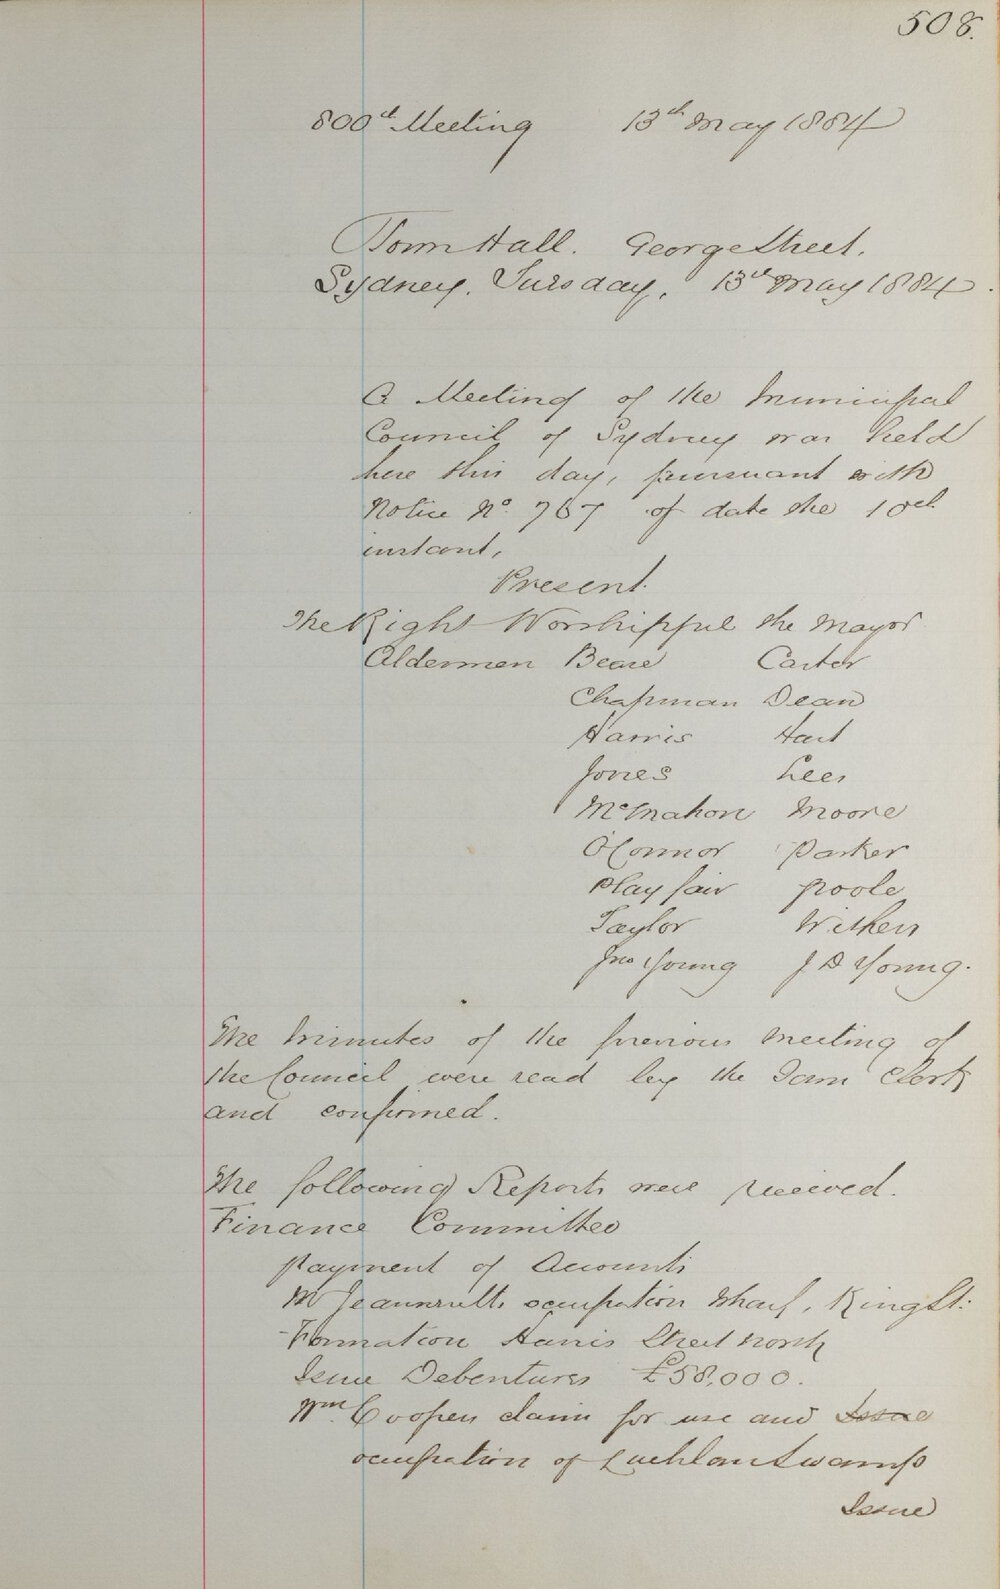 508.
800th Meeting 13th May 1884
Town Hall. George Street.
Sydney, Tuesday, 13th May 1884.
A Meeting of the Municipal
Council of Sydney was held
here this day, pursuant with
Notice No. 767 of date the 10th
instant,
Present.
The Right Worshipful the Mayor
Aldermen Beare Carter
Chapman Dean
Harris Hart
Jones Lees
McMahon Moore
O'Connor Parker
Playfair Poole
Taylor Withers
Jno Young J D Young.
The Minutes of the previous Meeting of
the Council were read by the Town Clerk
and confirmed.
The following Reports were received.
Finance Committee
Payment of Accounts
Mr Jeannerett occupation Wharf, King St:
Formation Harris Street North
Issue Debentures £58,000.
Wm. Coopers claim for use and Issue
occupation of Lachlan Swamp
Issue